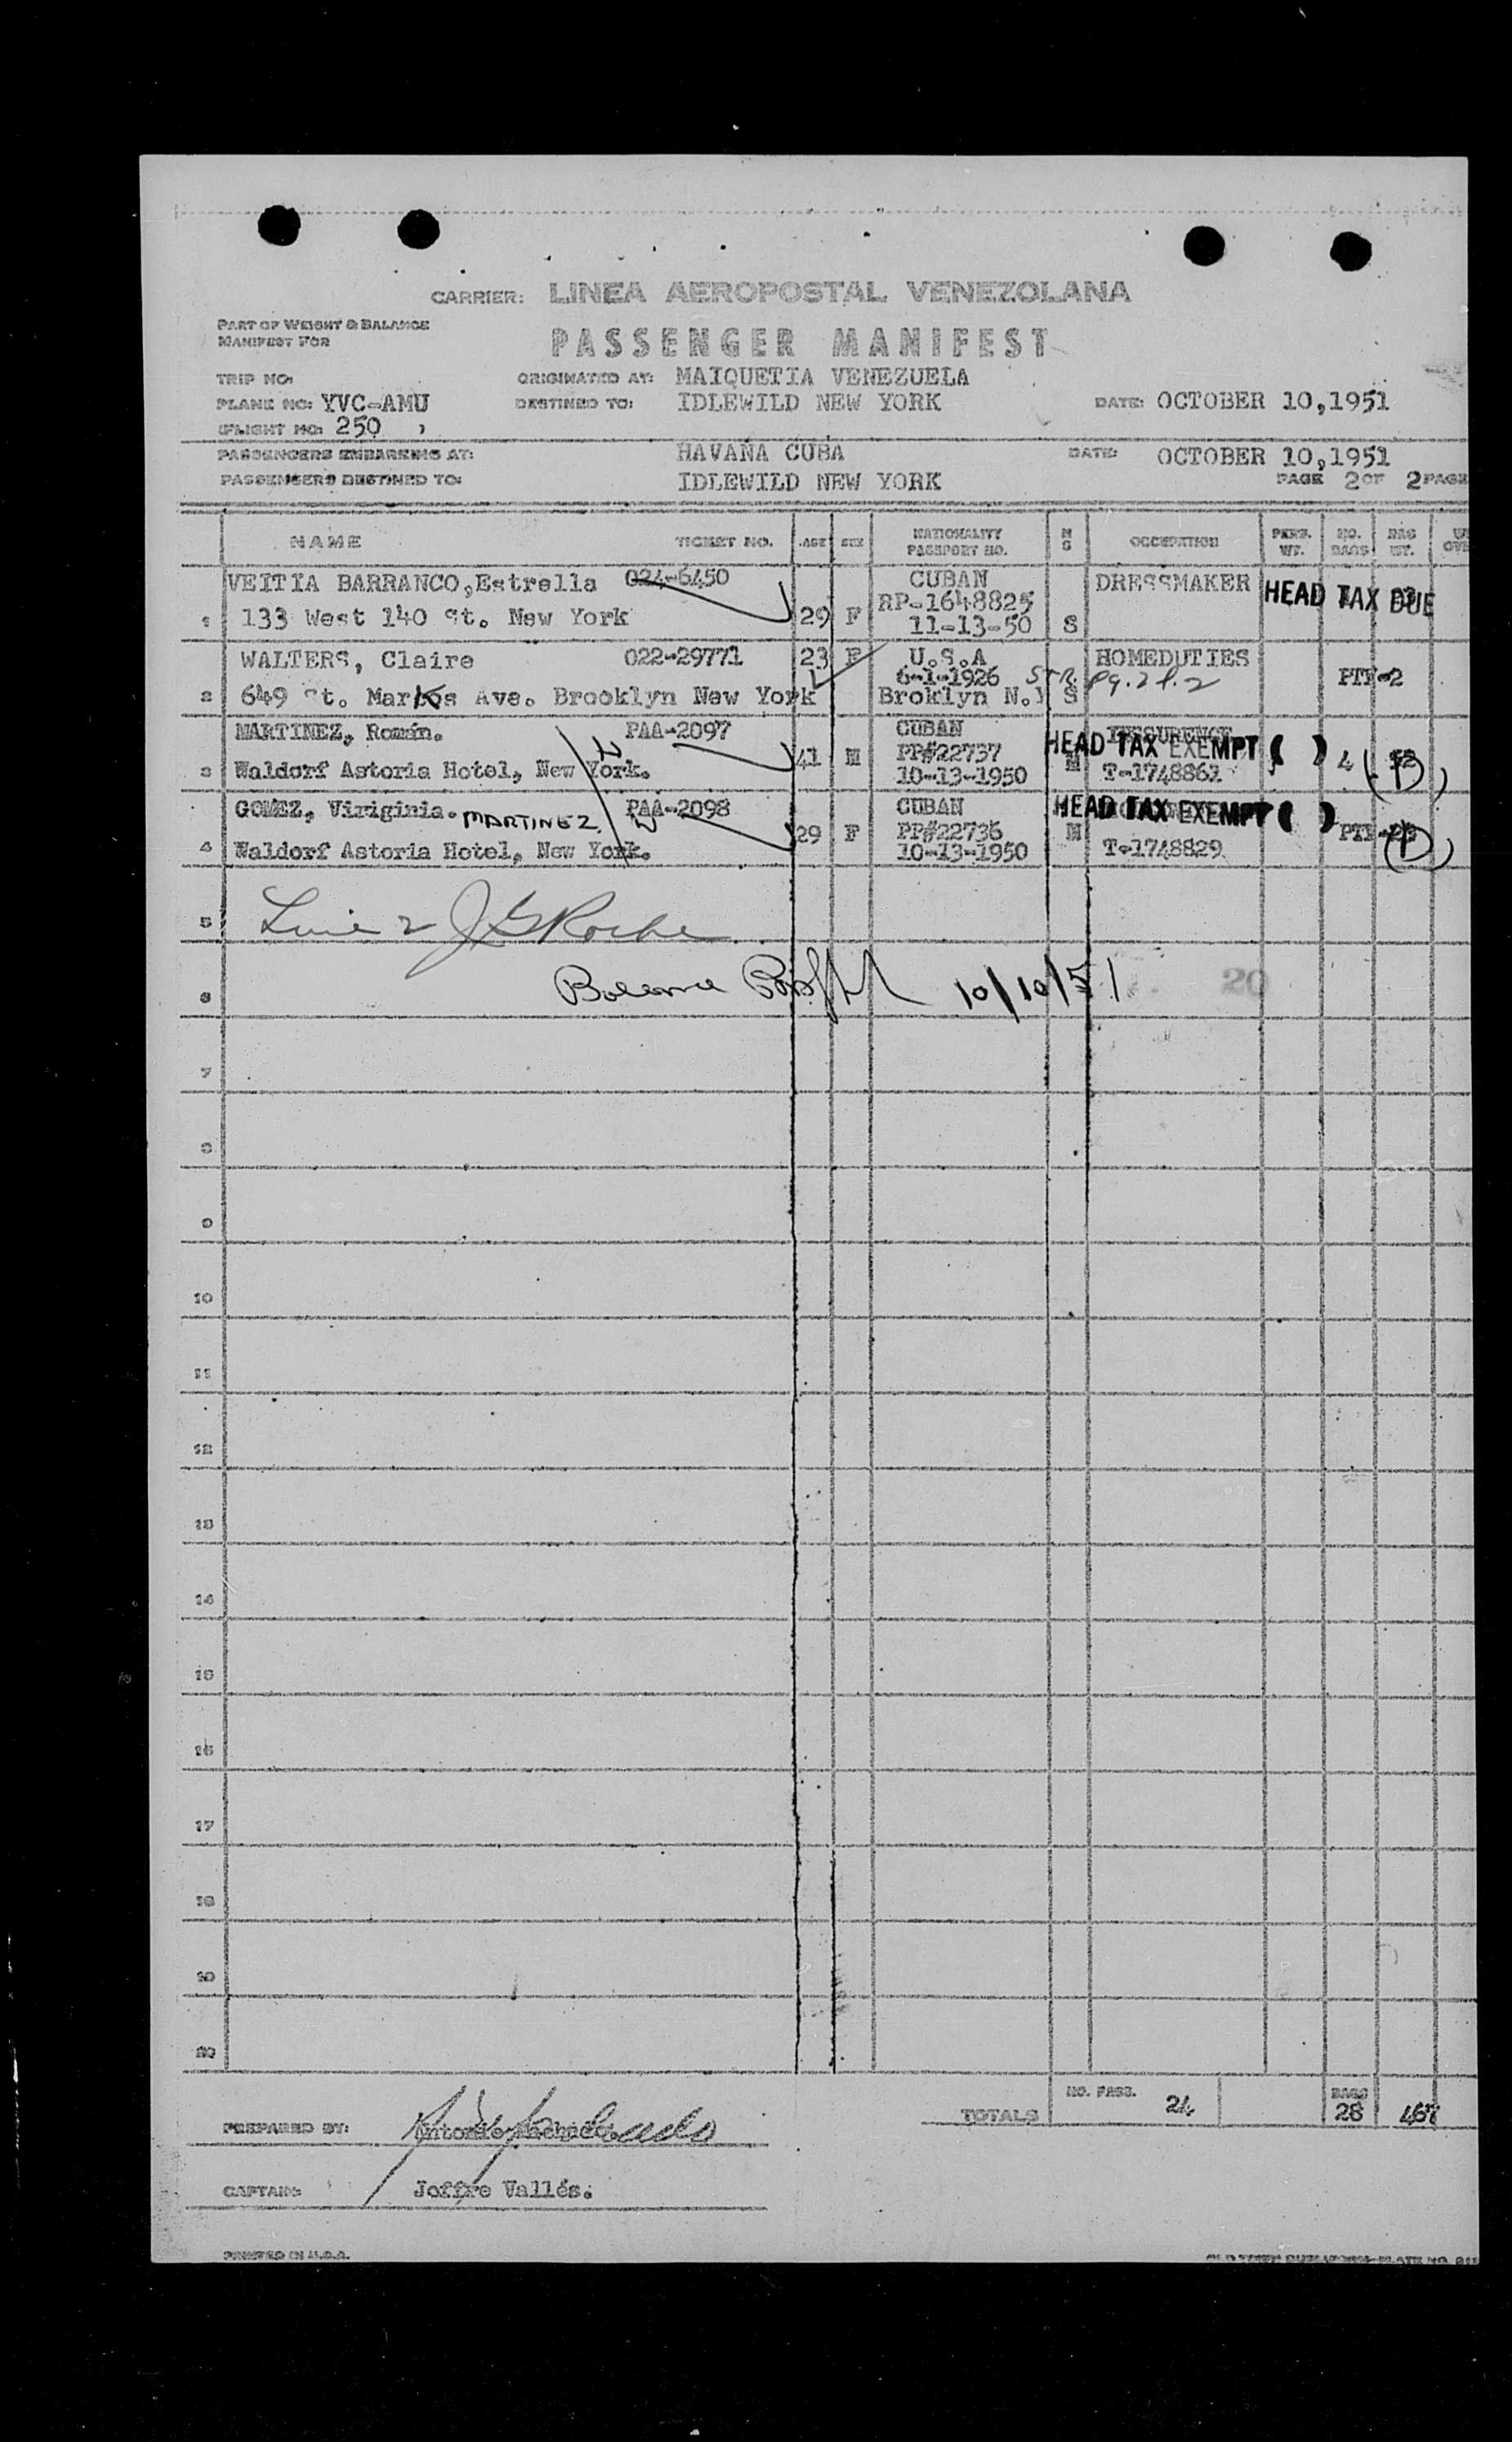 CARRIER: LINEA AEROPOSTAL VENEZOLANA
PART OF WEIGHT & BALANCE
MANIFEST FOR
PASSENGER MANIFEST
TRIP NO: ORIGINATED AT: MAIQUETIA VENEZUELA
PLANE NO: YVC-AMU DESTINED TO: IDLEWILD NEW YORK DATE: OCTOBER 10,1951
FLIGHT NO: 250
PASSENGERS EMBARKING AT: HAVANA CUBA DATE: OCTOBER 10,1951
PASSENGERS DESTINED TO: IDLEWILD NEW YORK PAGE 2 OF 2 PAGE
NAME TICKET NO. AGE SEX NATIONALITY PASSPORT NO. M S OCCUPATION PERS. WT. NO. BAGS BAG WT.
VEITIA BARRANCO,Estrella 024-6450 CUBAN DRESSMAKER HEAD TAX DUE
RP-1648825
1 133 West 140 St. New York 29 F 11-13-50 S
WALTERS, Claire 022-29771 23 F U.S.A HOMEDUTIES
6-1-1926 STR. Pg. 2 l. 2 PTF-2
2 649 St. Marks Ave. Brooklyn New York Broklyn N.Y S
MARTINEZ, Román. PAA-2097 CUBAN
41 M PP#22737 HEAD TAX EXEMPT ( ) 4
3 Waldorf Astoria Hotel, New York. 10-13-1950 M T-1748861
GOMEZ, Viriginia. MARTINEZ PAA-2098 CUBAN HEAD TAX EXEMPT ( )
29 F PP#22736 M
4 Waldorf Astoria Hotel, New York. 10-13-1950 T-1748829
5 Line 2
6 10/10/51 20
7
8
9
10
11
12
13
14
15
16
17
18
19
20
TOTALS NO. PASS. 24 BAGS 28
PREPARED BY:
CAPTAIN: Joffre Vallés.
PRINTED IN U.S.A.